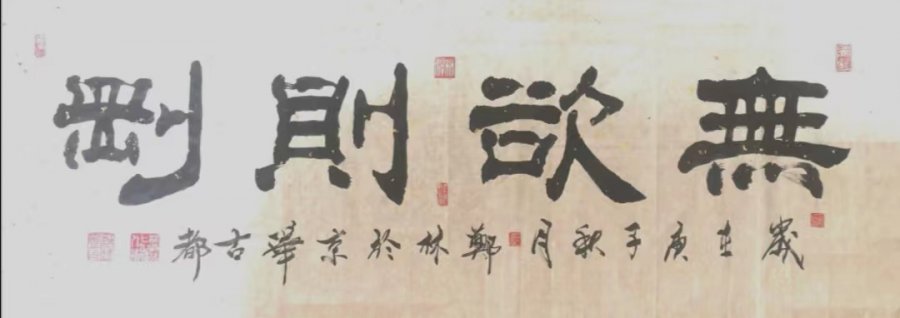 無欲則剛
歲在庚子秋月鄭林於京華古都